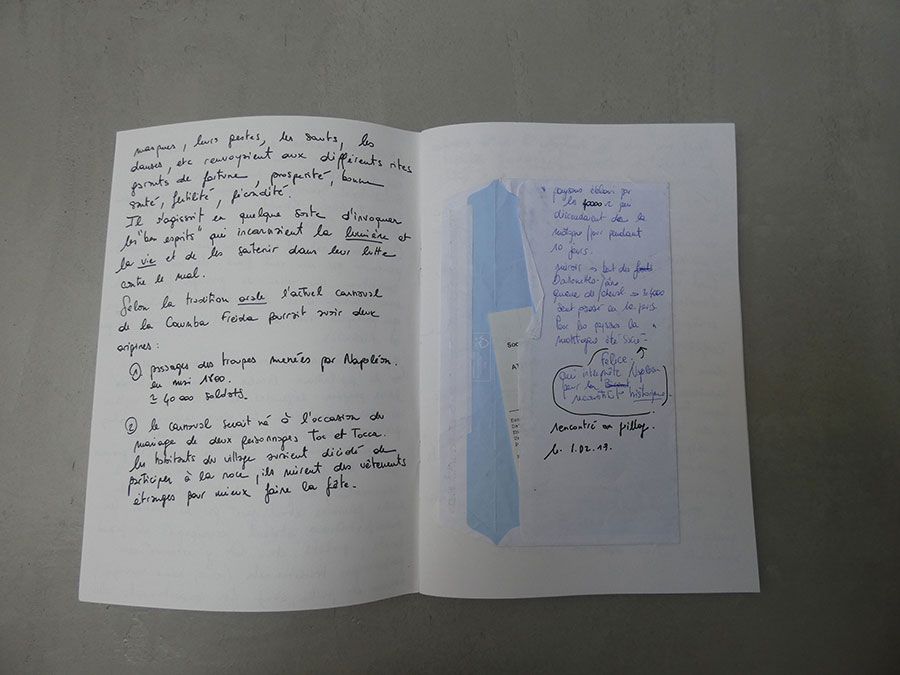 masques, leurs gestes, les sauts, les
danses, etc renvoyaient aux différents rites
garants de fortune, prosperité, bonne
santé, fertilité, fécondité.
Il s'agissait en quelque sorte d'invoquer
les "bon esprits" qui incarnaient la lumière et
la vie et de les soutenir dans leur lutte
contre le mal.
Selon la tradition orale l'actuel carnaval
de la Coumba Freida pourrait avoir deux
origines :
① passages des troupes menées par Napoléon.
en mai 1800.
≃ 40 000 soldats.
② le carnaval serait né à l'occasion du
mariage de deux personnages Toc et Tocca.
les habitants du village auraient décidé de
participer à la noce, ils mirent des vêtements
étranges pour mieux faire la fête.
paysans éblouis par
les 40000 qui
descendaient de la
montagne pendant
10 jours.
miroir → des
queue de cheval → 40000
sont passés en 10 jours
Pour les paysans la
montagne été
Félice
qui interprète Napoléon
pour la
reconstitut° historique.
rencontré au village
le 1.02.13.
Soc